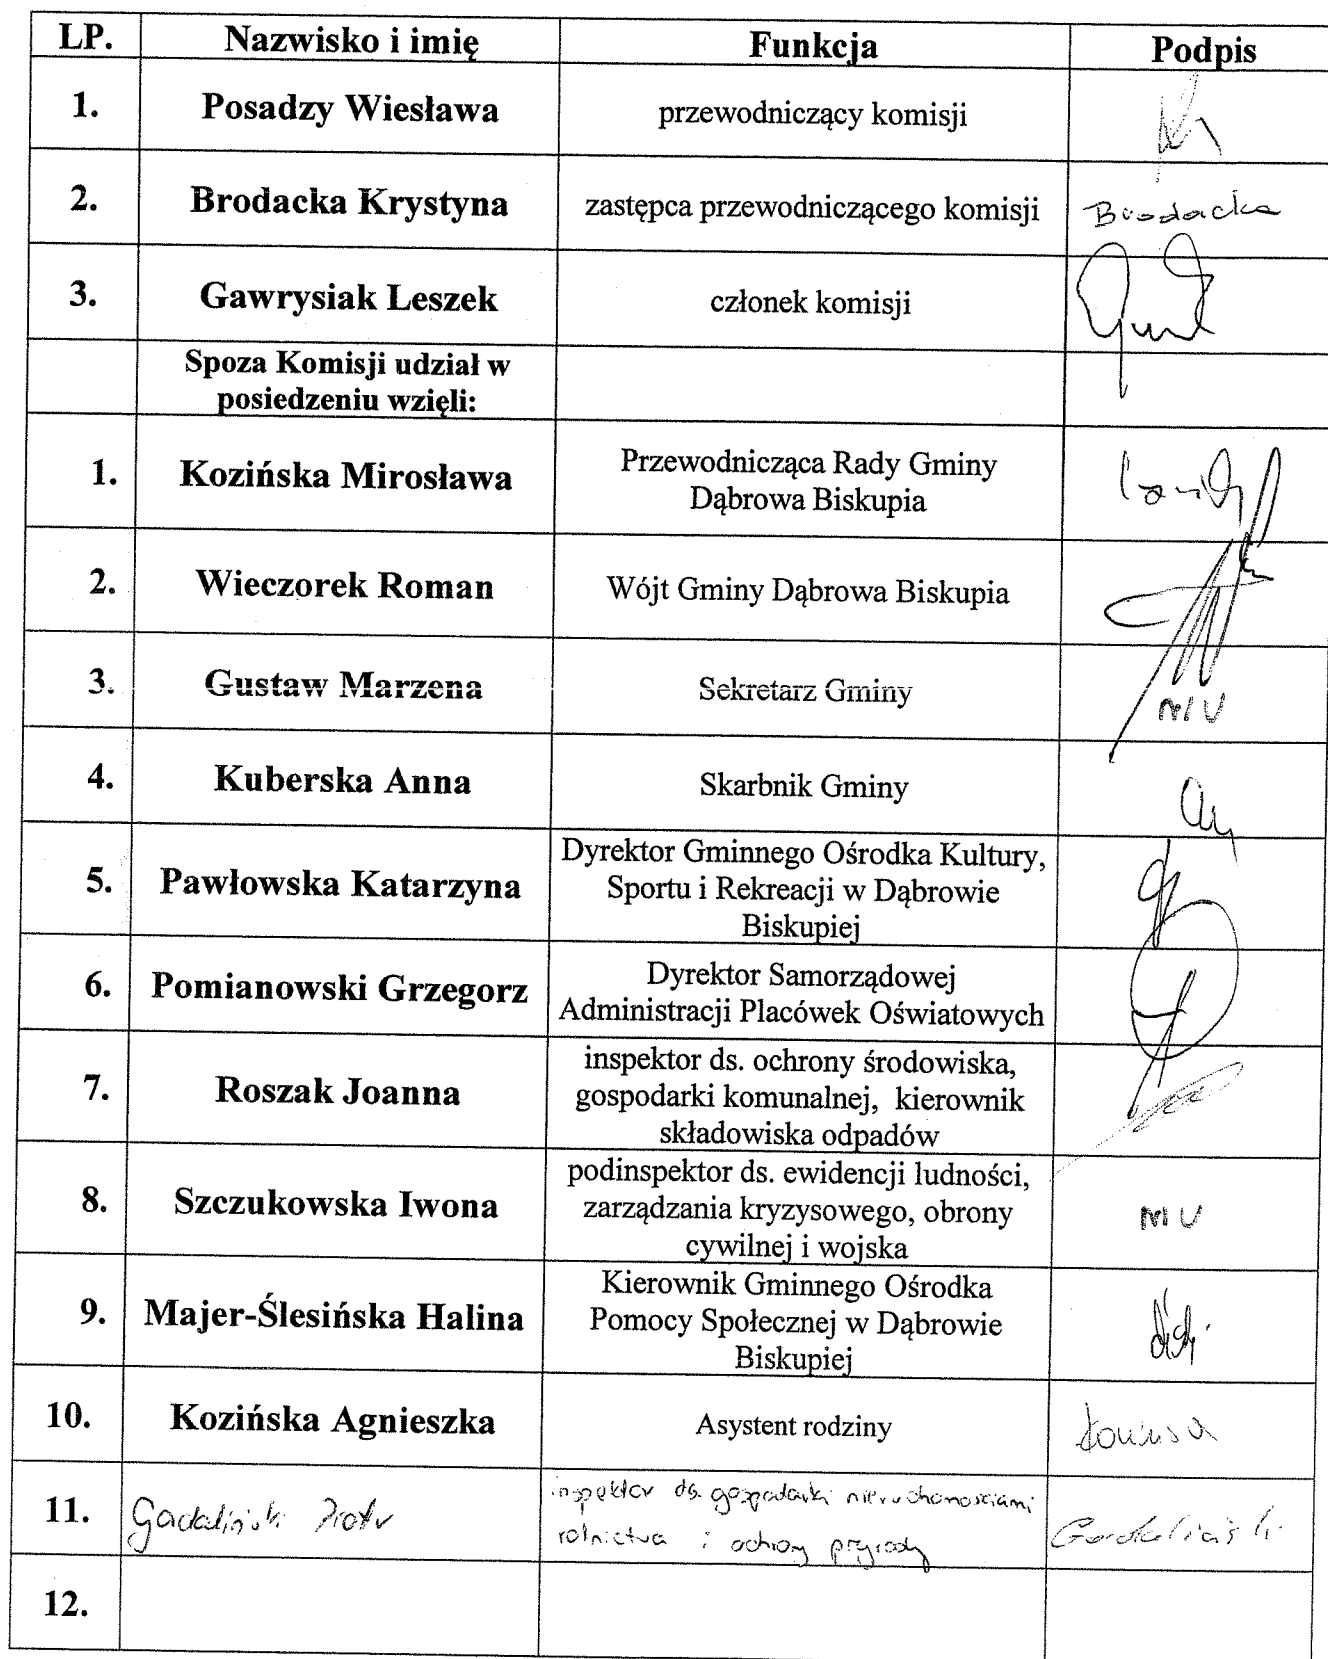 LP. Nazwisko i imię Funkcja Podpis
1. Posadzy Wiesława przewodniczący komisji
2. Brodacka Krystyna zastępca przewodniczącego komisji Brodacka
3. Gawrysiak Leszek członek komisji
Spoza Komisji udział w
posiedzeniu wzięli:
1. Kozińska Mirosława Przewodnicząca Rady Gminy
Dąbrowa Biskupia
2. Wieczorek Roman Wójt Gminy Dąbrowa Biskupia
3. Gustaw Marzena Sekretarz Gminy
4. Kuberska Anna Skarbnik Gminy
5. Pawłowska Katarzyna Dyrektor Gminnego Ośrodka Kultury,
Sportu i Rekreacji w Dąbrowie
Biskupiej
6. Pomianowski Grzegorz Dyrektor Samorządowej
Administracji Placówek Oświatowych
7. Roszak Joanna inspektor ds. ochrony środowiska,
gospodarki komunalnej, kierownik
składowiska odpadów
8. Szczukowska Iwona podinspektor ds. ewidencji ludności,
zarządzania kryzysowego, obrony
cywilnej i wojska
9. Majer-Ślesińska Halina Kierownik Gminnego Ośrodka
Pomocy Społecznej w Dąbrowie
Biskupiej
10. Kozińska Agnieszka Asystent rodziny
11. Gadaliński Piotr inspektor ds. gospodarki nieruchomościami
rolnictwa i ochrony przyrody Gadaliński
12.